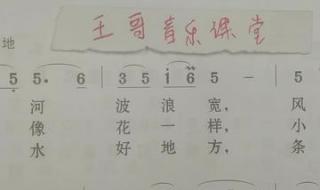 王哥音乐课堂
地
5 5· 6 3 5 i 6 5 - 5
河 波 浪 宽， 风
像 花 一 样， 小
水 好 地 方， 条